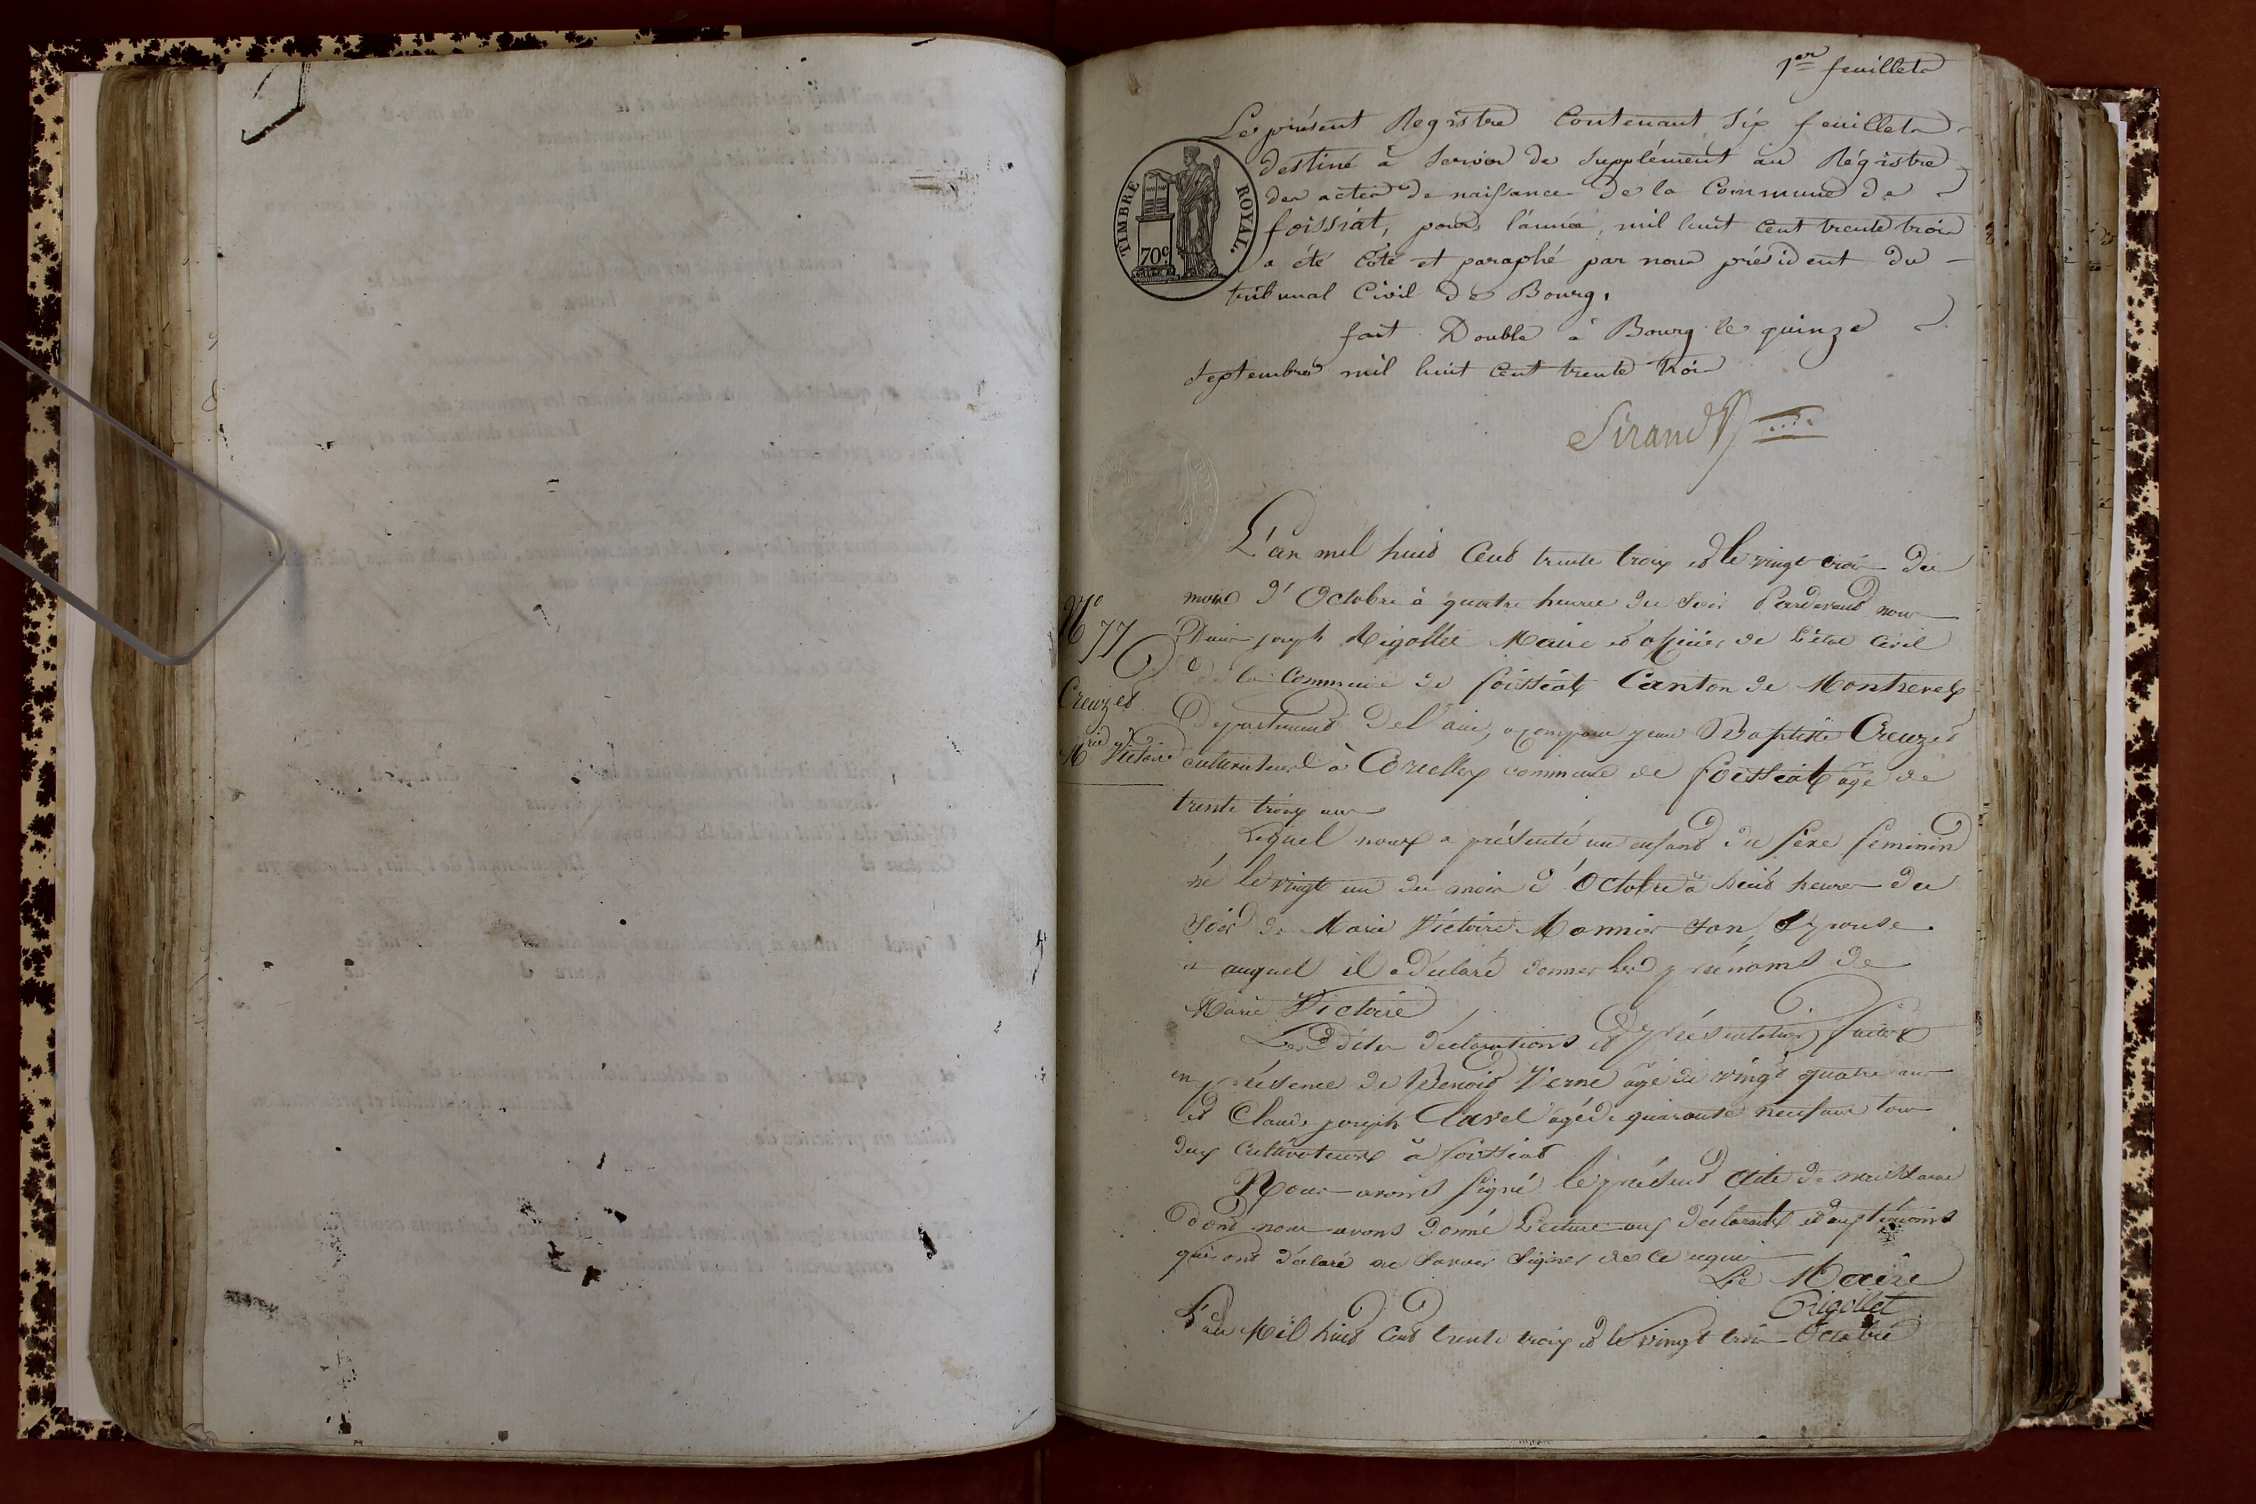 1er feuillet
Le présent Registre Contenant Six feuillets
destiné à Servir de Supplément au Régistre
des actes de naissance de la Commune de
foissiat, pour l'année, mil huit cent trente trois
a été coté et paraphé par nous président du
tribunal Civil de Bourg.
fait Double à Bourg le quinze
septembre mil huit cent trente trois
TIMBRE ROYAL.
70c
Sirand
L'an mil huit Cent trente troix et le vingt trois du
mois d'Octobre à quatre heures du soir Pardevant nous
joseph Rigollet Maire et officier de l'état Civil
de la Commune de foissiat Canton de Montrevel
Département De l'ain, a comparu jean Baptiste Creuzet
cultivateur à Corcelles commune de foissiat agé de
trente troix ans
N° 77
Creuzet
Mrie Victoire
Lequel noux a présenté un enfant du sexe feminin
né le vingt un du mois d'Octobre à huit heures du
soir de Marie Victoire Monnier Son Epouse
et auquel il a Déclaré donner les prénoms de
Marie Victoire
Les dites déclarations et présentation faites
en présence de Benoit Verne agé de vingt quatre ans
et Claude joseph Clavel agé de quarante neuf ans tous
deux Cultivateurs à foissiat
Nous avons signé le présent acte de naissance
dont nous avons donné Lecture aux déclarants et aux témoins
qui ont déclaré ne savoir signer de ce requis
Le Maire
Rigollet
L'an Mil huit Cent trente troix et le vingt trois Octobre